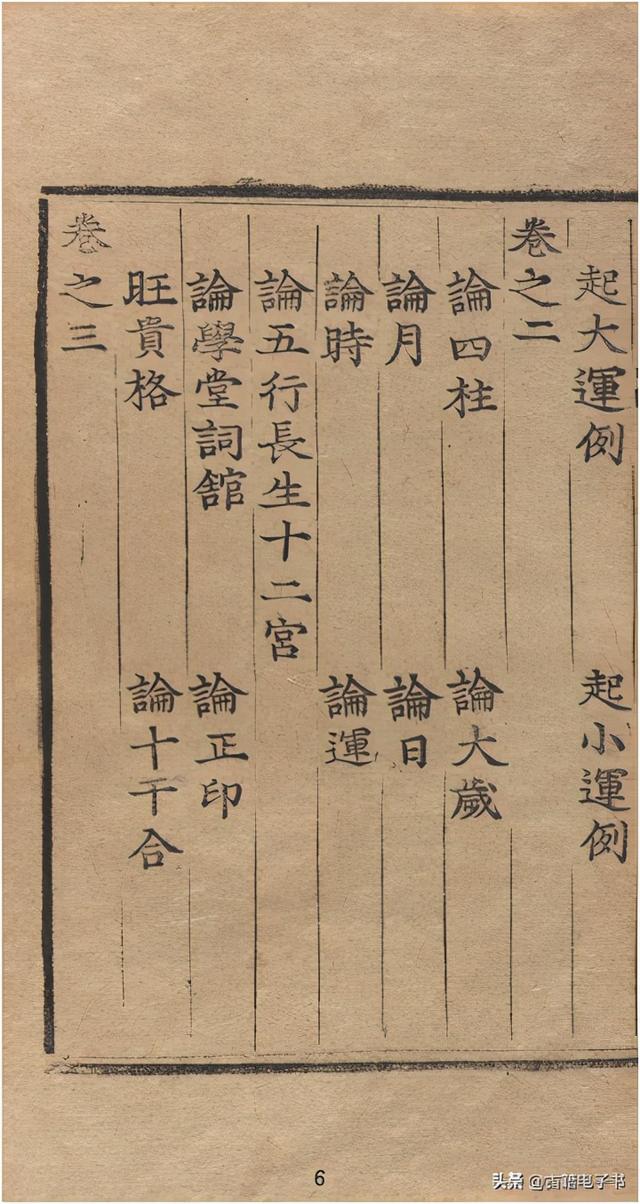 起大運例 起小運例
卷之二
論四柱 論大歲
論月 論日
論時 論運
論五行長生十二宮
論學堂詞舘 論正印
旺貴格 論十干合
卷之三
6
头条 @古籍电子书